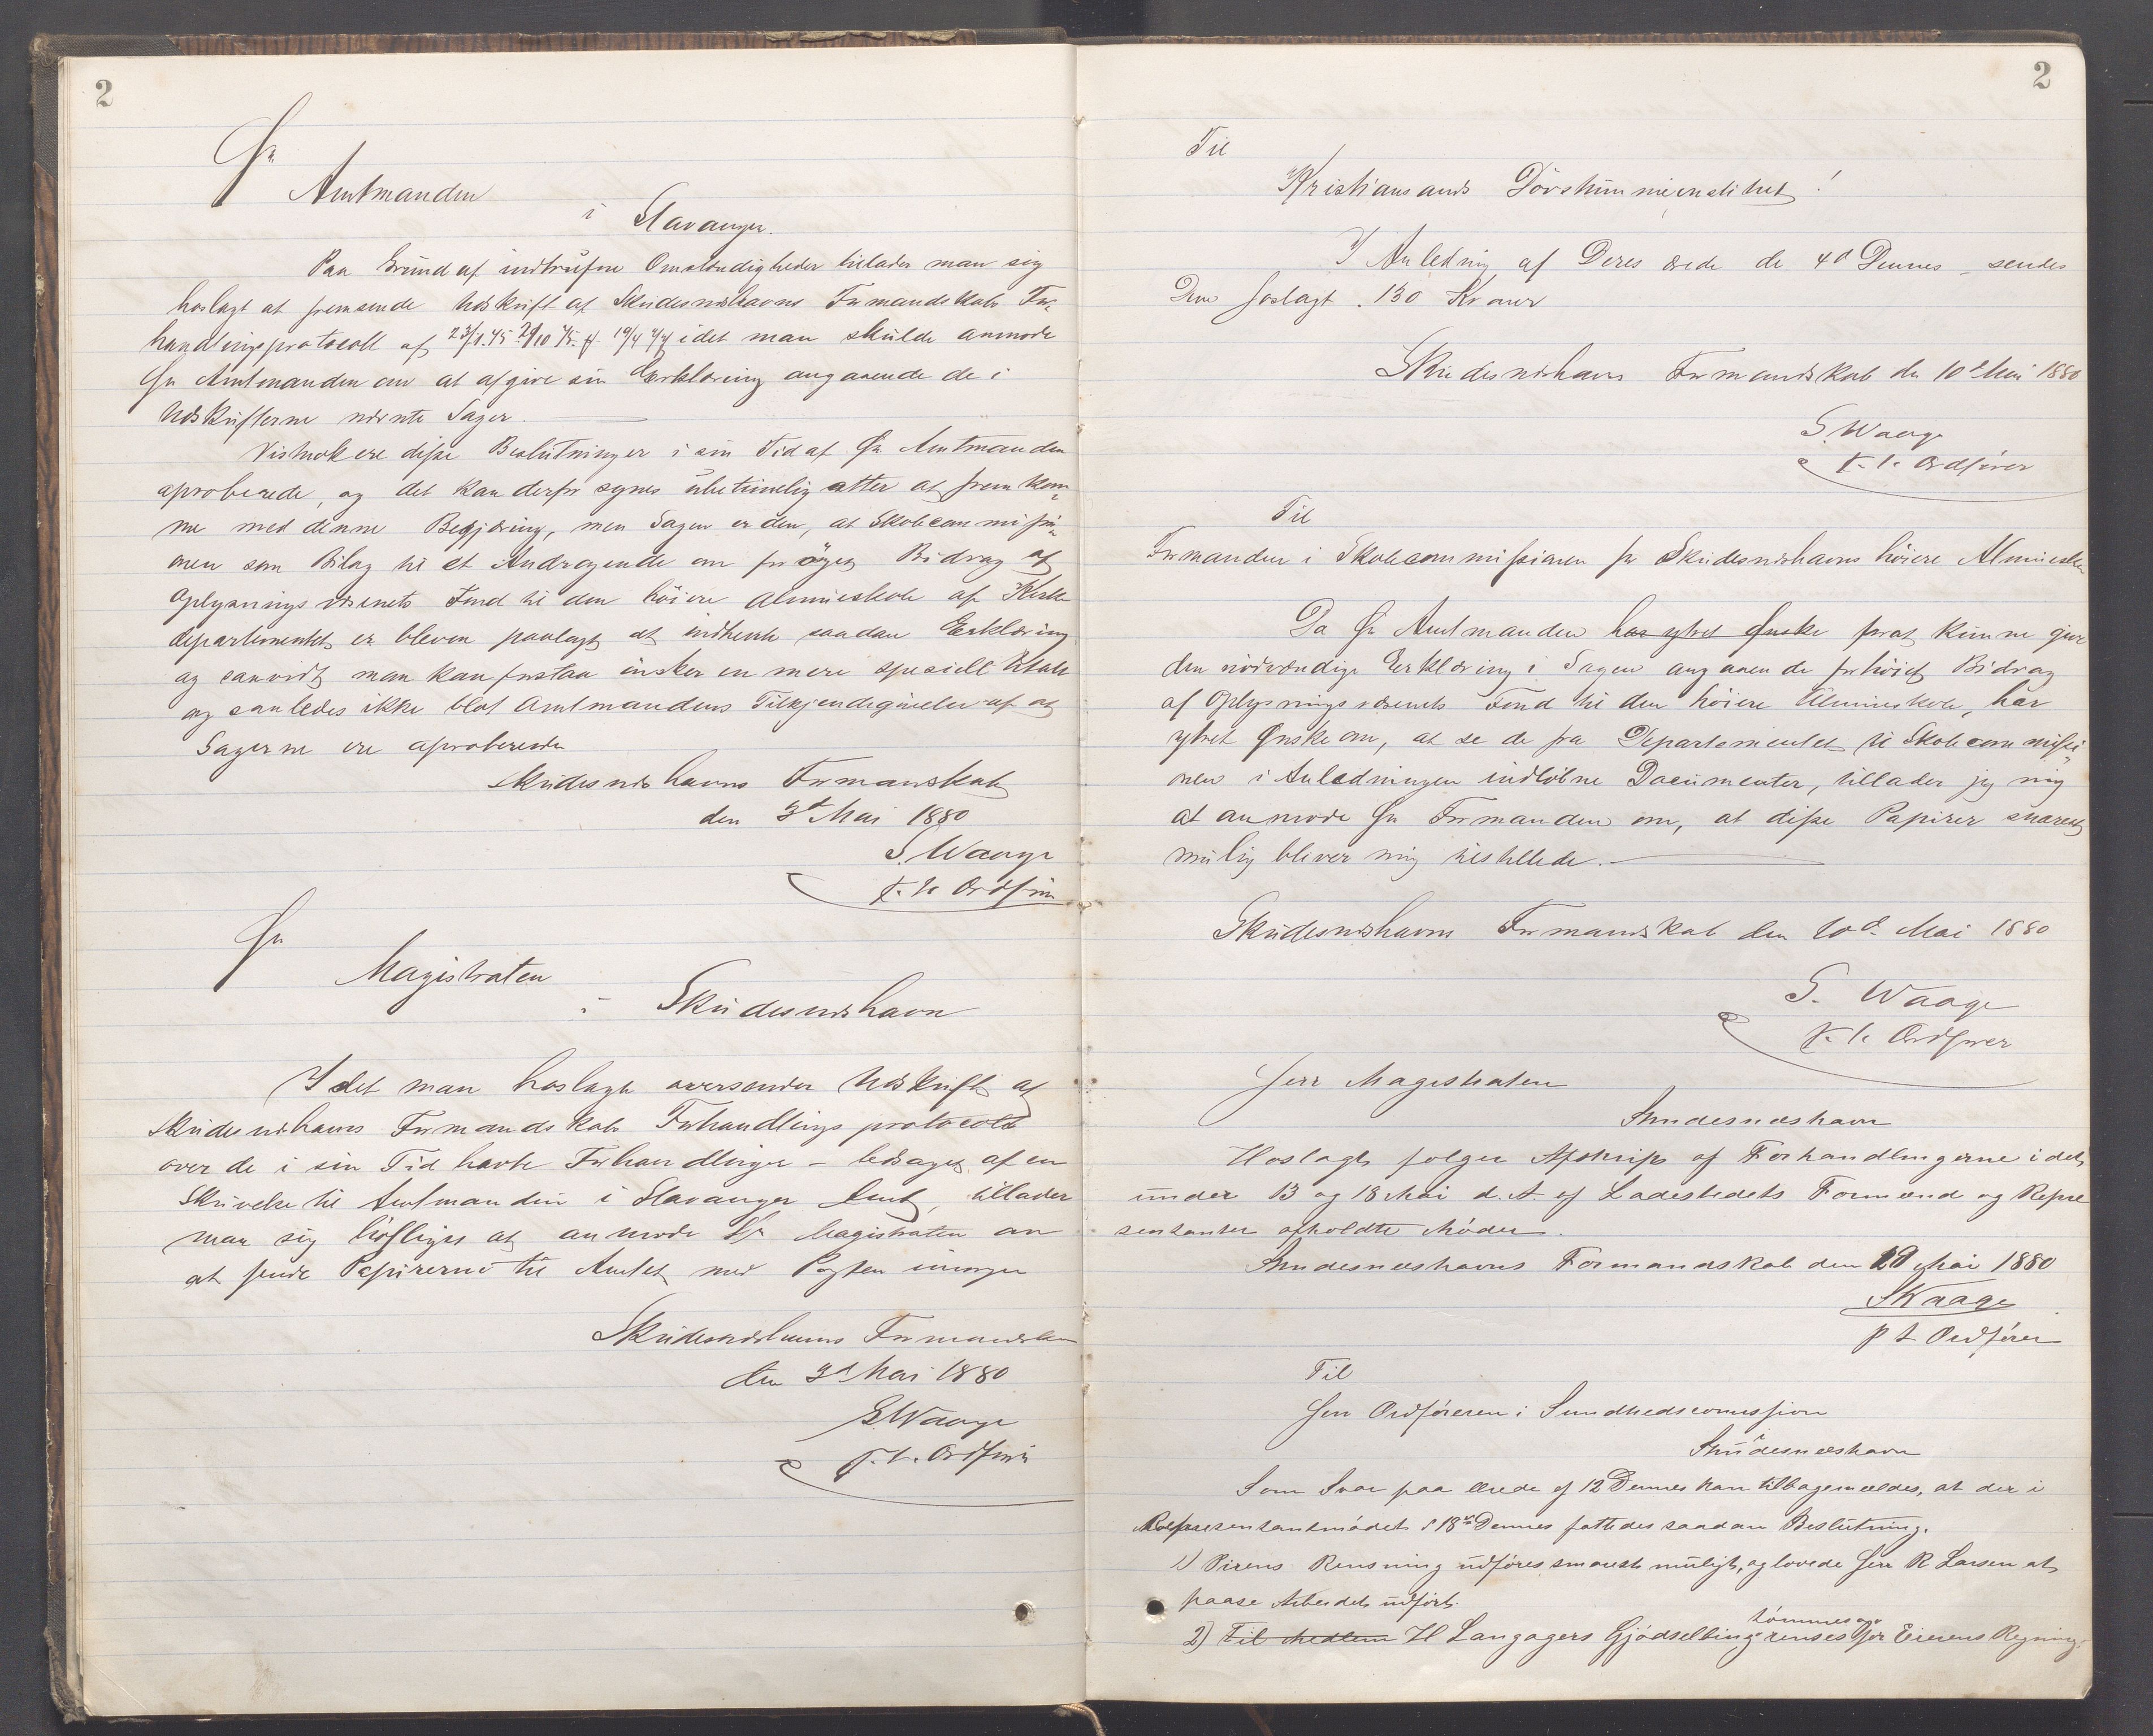 2
Hr
Amtmanden
i Stavanger.
Paa Grund af indtrufne Omstændigheder tillader man sig
hoslagt at fremsende Udskrift af Skudesnæshavns Formandskabs For-
handlingsprotocoll af 23/1. 75 29/10 75. & 19/4 77 idet man skulde anmode
Hr Amtmanden om at afgive sin Erklæring angaaende de i
Udskrifterne nævnte Sager.
Vistnok ere disse Beslutninger i sin Tid af Hr. Amtmanden
aproberede, og det kan derfor synes ubetimelig atter at frem kom-
me med denne Begjæring, men Sagen er den, at Skolecommissi-
onen som Bilag til et Andragende om forøget Bidrag af
Oplysningsvæsenets Fond til den höiere Almueskole af Kirke
departementet er bleven paalagt at indhente saadan Erklæring
og saavidt man kan forstaa ønskes en mere speciell Udtale
og saaledes ikke blot Amtmandens Tilkjendegivelse af at
Sagerne ere aproberede
Skudesnæshavns Formandskab
den 3d Mai 1880
S. Waage
p. t. Ordfører
Hr
Magistraten
i Skudesnæshavn
Idet man hoslagt oversender Udskrift af
Skudesnæshavns Formandskabs Forhandlingsprotocoll
over de i sin Tid havte Forhandlinger – ledsaget af en
Skrivelse til Amtmanden i Stavanger Amt, tillader
man sig höfligst at anmode Hr Magistraten om
at sende Papirerne til Amtet med Posten imorgen
Skudesnæshavns Formandskab
den 3d Mai 1880
S. Waage
p. t. Ordfører
2
Til
Kristiansands Dövstummeinstitut!
I Anledning af Deres ærede de 4d Dennes – sendes
Dem hoslagt. 130 Kroner
Skudesnæshavns Formandskab den 10d Mai 1880
S. Waage
p. t. Ordfører
Til
Formanden i Skolecommissionen for Skudesnæshavns höiere Almueskole
Da Hr Amtmanden har ytret Ønske forat kunne give
den nödvendige Erklæring i Sagen angaaende forhöiet Bidrag
af Oplysningsvæsenets Fond til den höiere Almueskole, har
ytret Ønske om, at se de fra Departementet til Skolecommissi-
onen i Anledningen indlöbne Documenter, tillader jeg mig
at anmode Hr Formanden om, at disse Papirer snarest
mulig bliver mig tilstillede.
Skudesnæshavns Formandskab den 10d. Mai 1880
S. Waage
p. t. Ordfører
Herr Magistraten
Skudesnæshavn
Hoslagt følger Afskrift af Forhandlingerne i det
under 13 og 18 Mai d. A. af Ladestedets Formænd og Repræ
sentanter afholdte Möder.
Skudesnæshavns Formandskab den 20 Mai 1880
S Waage
p t Ordförer
Til
Herr Ordföreren i Sundhedscomission
Skudesnæshavn
Som Svar paa ærede af 12 Dennes kan tilbagemeldes, at der i
Repræsentantmödet d 18de Dennes fattedes saadan Beslutning.
1) Pirens Rensning udföres snarest muligt, og lovede Herr R Larsen at
paase Arbeidet udfört.
2) Til Medlem H Langagers Gjödselbinge tömmes og renses for Eierens Regning.